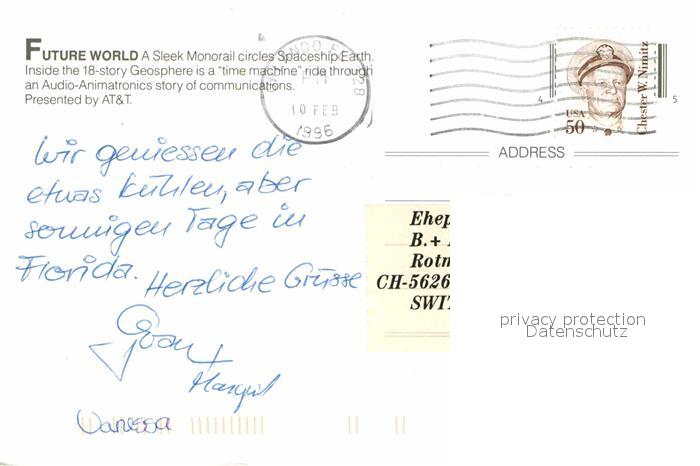 FUTURE WORLD A Sleek Monorail circles Spaceship Earth.
Inside the 18-story Geosphere is a "time machine" ride through
an Audio-Animatronics story of communications.
Presented by AT&T.
PM
10 FEB
1996
USA
50
Chester W. Nimitz
4
5
ADDRESS
Wir geniessen die
etwas kühlen, aber
sonnigen Tage in
Florida.
Herzliche Grüsse
+
Margrit
Vanessa
B. +
CH-5626
privacy protection
Datenschutz